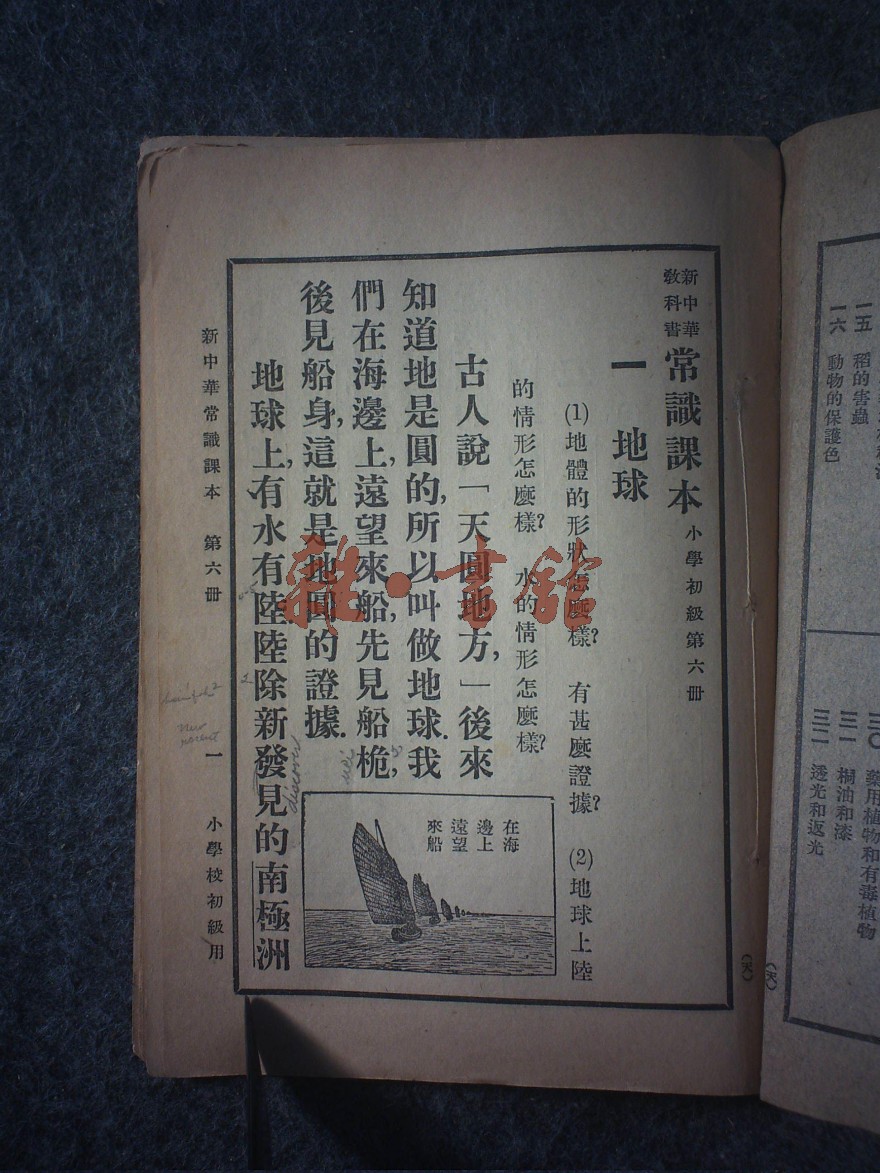 新中華
教科書
常識課本 小學初級第六冊
一 地球
(1)地體的形狀怎麼樣?有甚麼證據?(2)地球上陸
的情形怎麼樣?水的情形怎麼樣?
古人說「天圓地方,」後來
知道地是圓的,所以叫做地球.我
們在海邊上,遠望來船,先見船桅,
後見船身,這就是地圓的證據.
地球上,有水有陸.陸除新發見的南極洲
在海
邊上
遠望
來船
discover
新中華常識課本 第六冊 一 小學校初級用
(天)
雜·書館
一五 稻的害蟲
一六 動物的保護色
三〇 藥用植物和有毒植物
三一 桐油和漆
三二 透光和返光
(天)